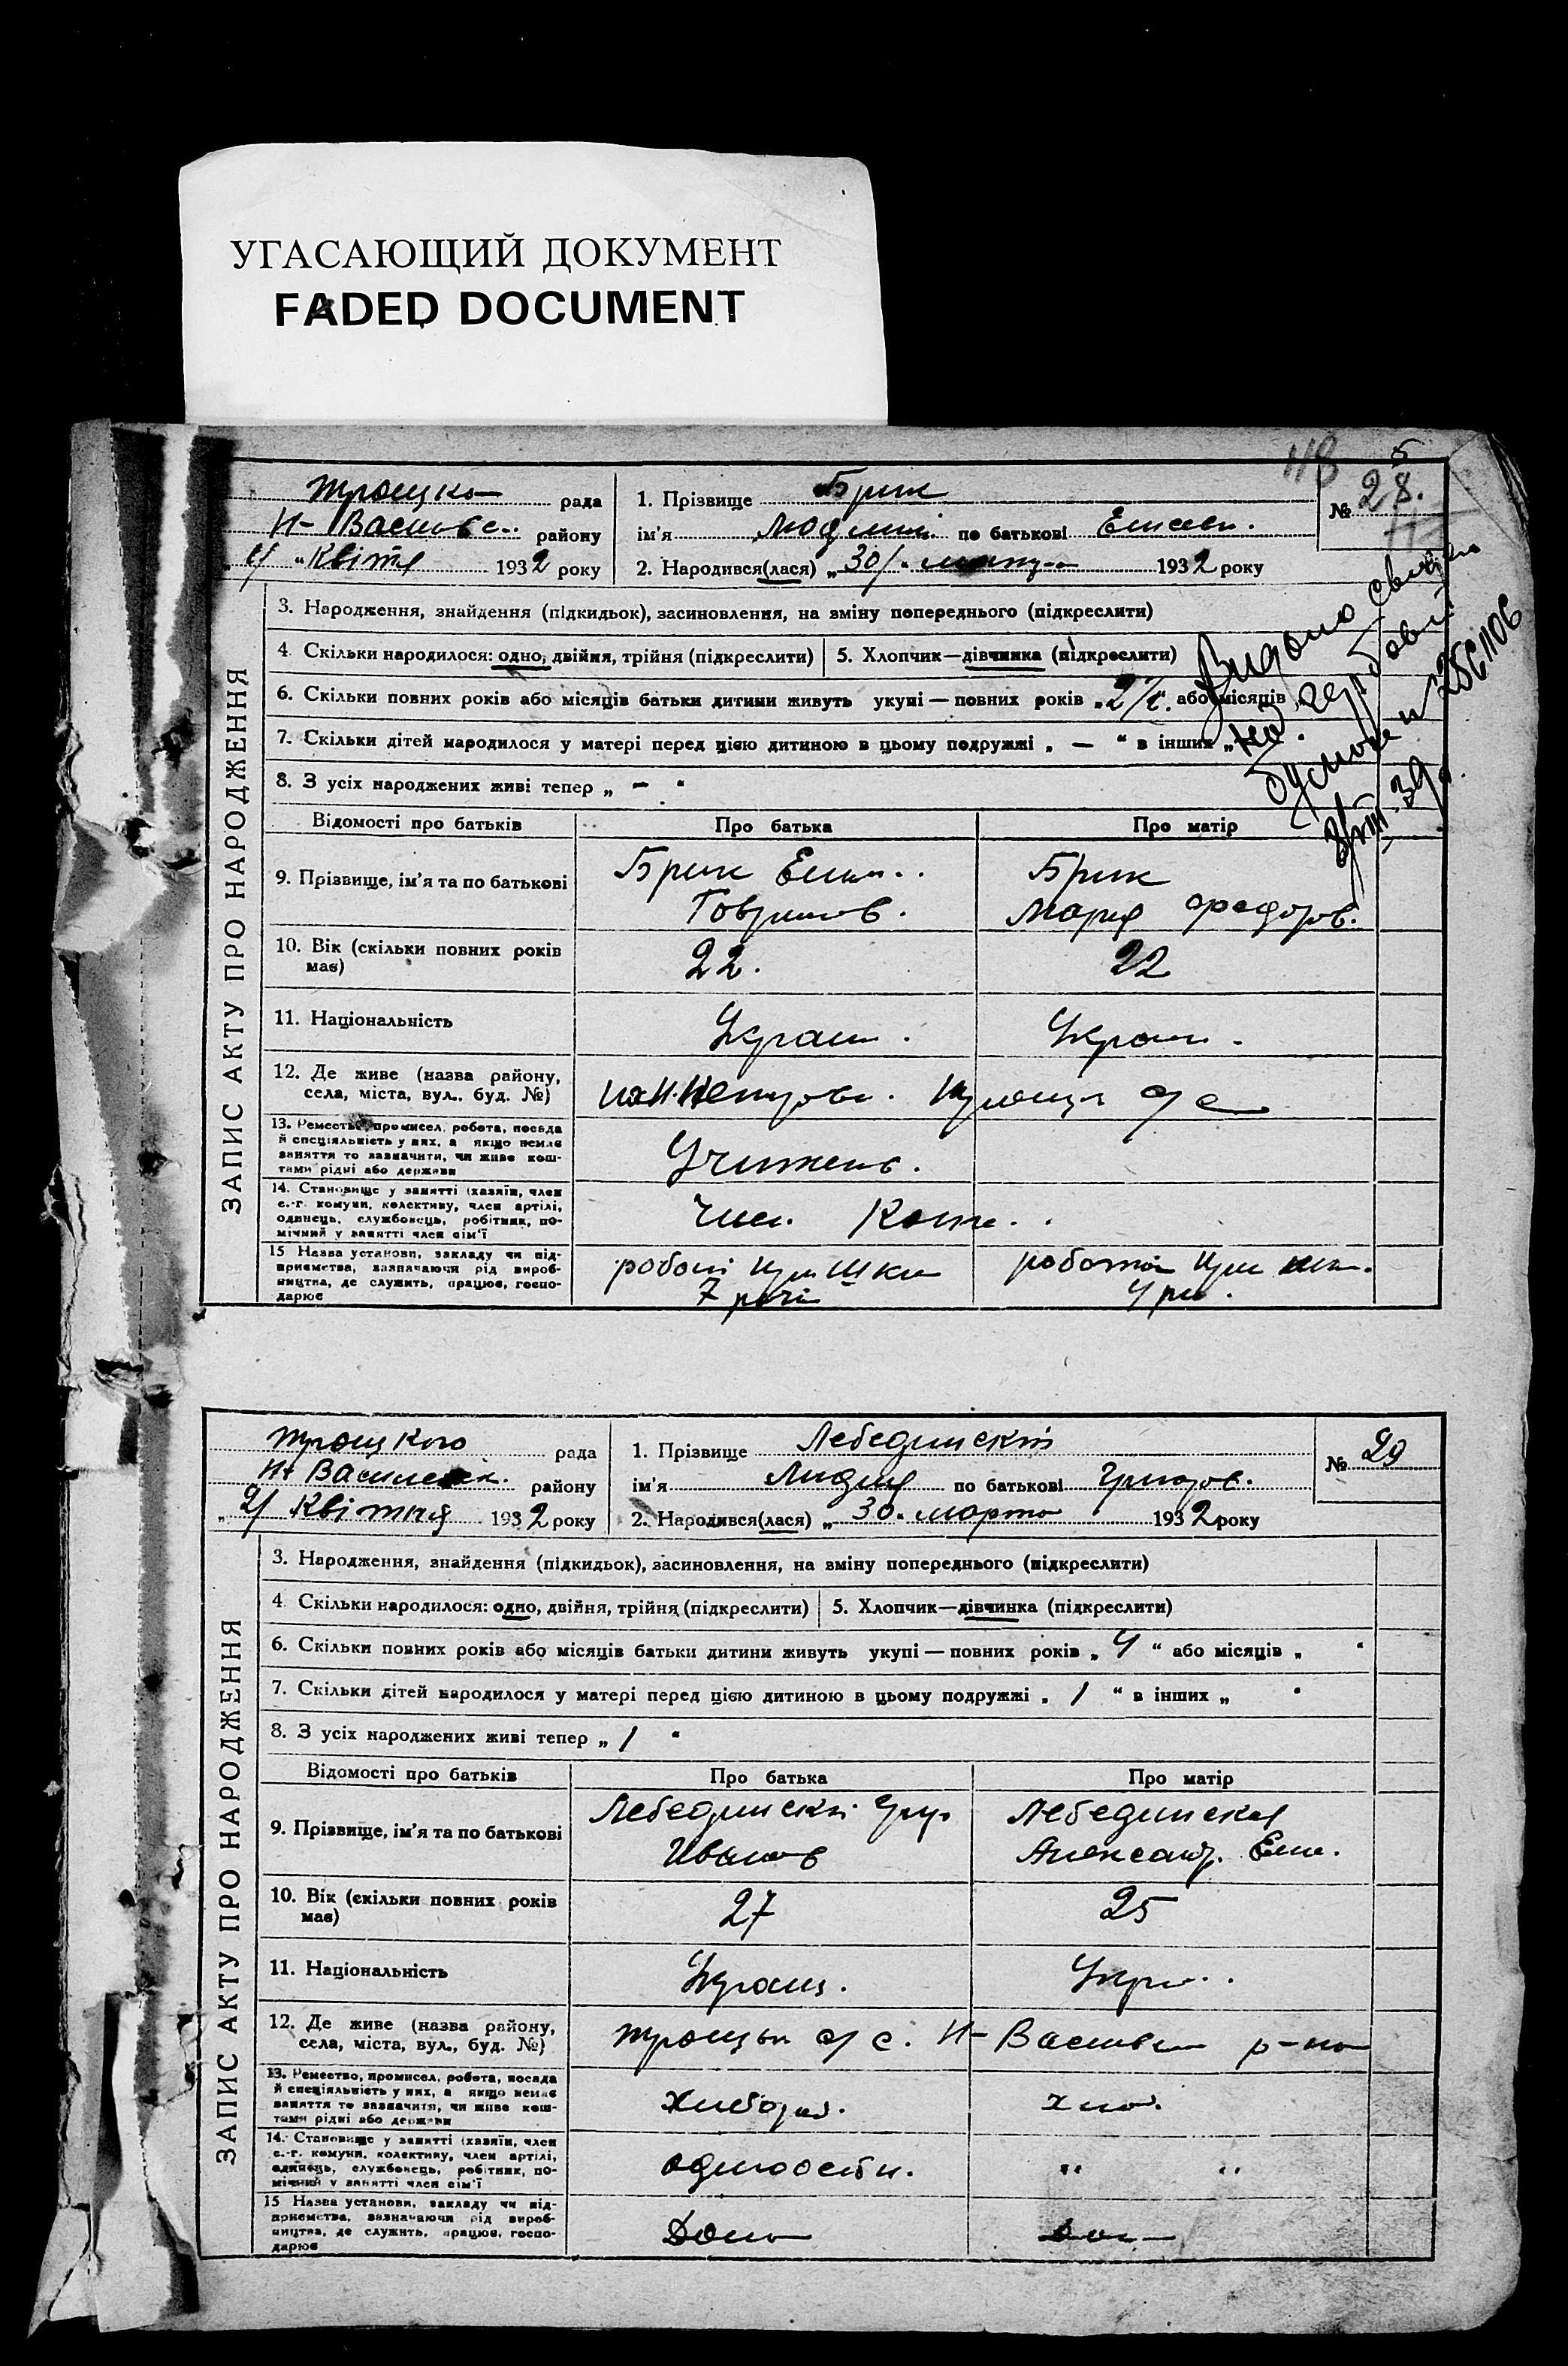 УГАСАЮЩИЙ ДОКУМЕНТ
FADED DOCUMENT
118
5
№ 28.
Троцко рада
Н- Васильв. району
4/ "Квітня 1932 року
1. Прізвище Брик
ім'я Людмила по батькові Елисеев.
2. Народився(лася) „30/" марта 1932 року
Видано
на гербовій
3/VIII 39р.
ЗАПИС АКТУ ПРО НАРОДЖЕННЯ
3. Народження, знайдення (підкидьок), засиновлення, на зміну попереднього (підкреслити)
4. Скільки народилося: одно, двійня, трійня (підкреслити) 5. Хлопчик—дівчинка (підкреслити)
6. Скільки повних років або місяців батьки дитини живуть укупі — повних років „ 2 або місяців
7. Скільки дітей народилося у матері перед цією дитиною в цьому подружжі „ — “ в інших „
8. З усіх народжених живі тепер „ — “
Відомості про батьків Про батька Про матір
9. Прізвище, ім'я та по батькові
Брик Брик
Гаврилов. Мария Федоров.
10. Вік (скільки повних років має) 22. 22
11. Національність Украин. Украин.
12. Де живе (назва району, села, міста, вул., буд. №) Троцк с/с
13. Ремество, промисел, робота, посада й спеціяльність у них, а якщо немає заняття то зазначити, чи живе коштами рідні або держави
Учитель.
14. Становище у занятті (хазяїн, член с.-г. комуни, колективу, член артілі, одинець, службовець, робітник, помічний у занятті член сім'ї
Член
15 Назва установи, закладу чи підприємства, зазначаючи рід виробництва, де служить, працює, господарює
7
№ 29
Троцкого рада
Н- Васильевк. району
„2/ Квітня 1932 року
1. Прізвище Лебединский
ім'я Лидия по батькові Григоров.
2. Народився(лася) „ 30. марта 1932 року
ЗАПИС АКТУ ПРО НАРОДЖЕННЯ
3. Народження, знайдення (підкидьок), засиновлення, на зміну попереднього (підкреслити)
4. Скільки народилося: одно, двійня, трійня (підкреслити) 5. Хлопчик—дівчинка (підкреслити)
6. Скільки повних років або місяців батьки дитини живуть укупі — повних років „ 4 “ або місяців „ “
7. Скільки дітей народилося у матері перед цією дитиною в цьому подружжі „ 1 “ в інших „ “
8. З усіх народжених живі тепер „ 1 “
Відомості про батьків Про батька Про матір
9. Прізвище, ім'я та по батькові
Лебединский Григ Лебединская
Иванов Александр. Елис.
10. Вік (скільки повних років має) 27 25
11. Національність Украин. Укра.
12. Де живе (назва району, села, міста, вул., буд. №) Троцьк с/с. Н- Васильв р-на
13. Ремество, промисел, робота, посада й спеціяльність у них, а якщо немає заняття то зазначити, чи живе коштами рідні або держави
Хлебороб. хлеб.
14. Становище у занятті (хазяїн, член с.-г. комуни, колективу, член артілі, одинець, службовець, робітник, помічний у занятті член сім'ї
одноосібн. " "
15 Назва установи, закладу чи підприємства, зазначаючи рід виробництва, де служить, працює, господарює
Дома Дома